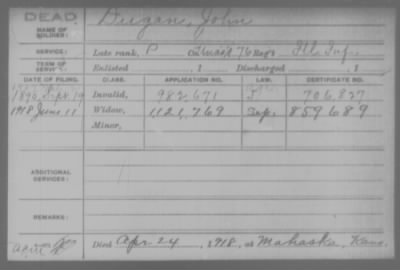 DEAD
NAME OF SOLDIER: Deegan, John
SERVICE: Late rank, P Co. 76 Reg't Ill Inf.
TERM OF SERVICE: Enlisted , 1 Discharged , 1
DATE OF FILING. CLASS. APPLICATION NO. LAW. CERTIFICATE NO.
1890, Sept. 19 Invalid, 982,671 706827
1918 June 11 Widow, 1,121,769 859689
Minor,
ADDITIONAL SERVICES:
REMARKS:
Died Apr. 24, 1918, at Mahaska, Kans.